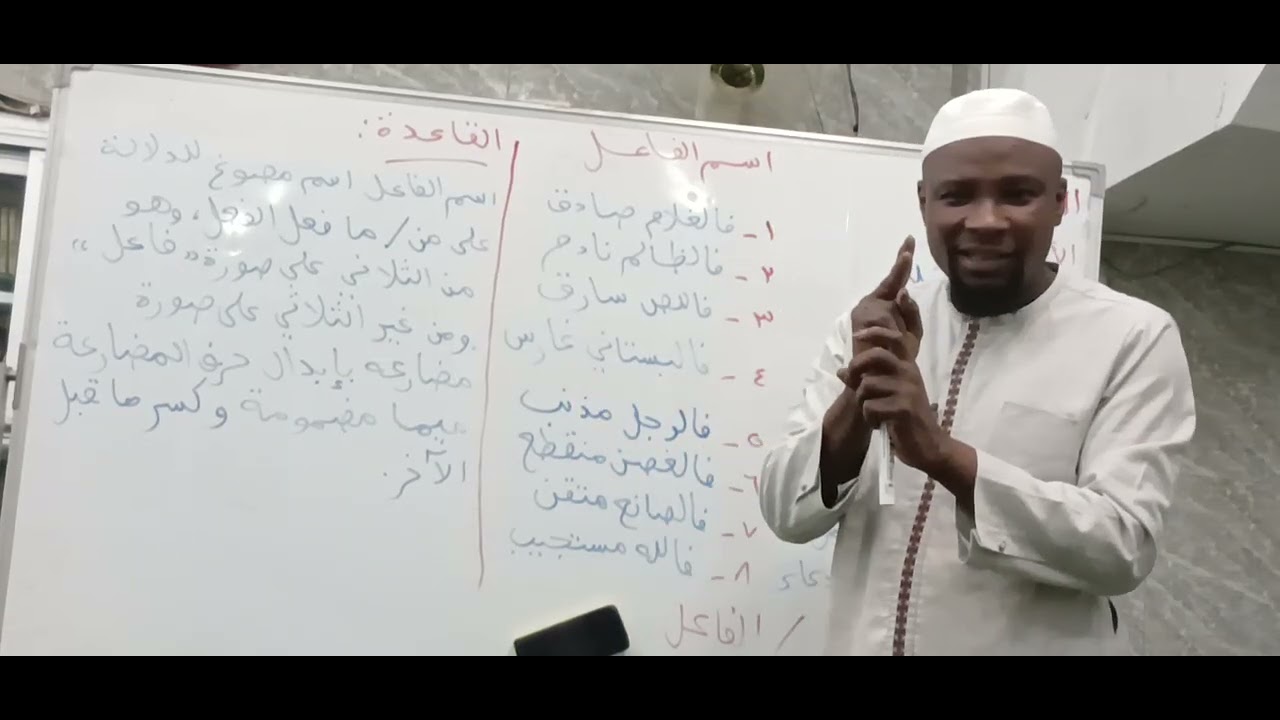 اسم الفاعل
١- فالغلام صادق
٢- فالظالم نادم
٣- فاللص سارق
٤- فالبستاني غارس
٥- فالرجل مذنب
٦- فالغصن منقطع
٧- فالصانع متقن
٨- فالله مستجيب
/ الفاعل
القاعدة:
اسم الفاعل اسم مصوغ للدلالة
على من/ ما فعل الفعل، وهو
من الثلاثي على صورة "فاعل"
ومن غير الثلاثي على صورة
مضارعه بإبدال حرف المضارعة
ميما مضمومة وكسر ما قبل
الآخر.